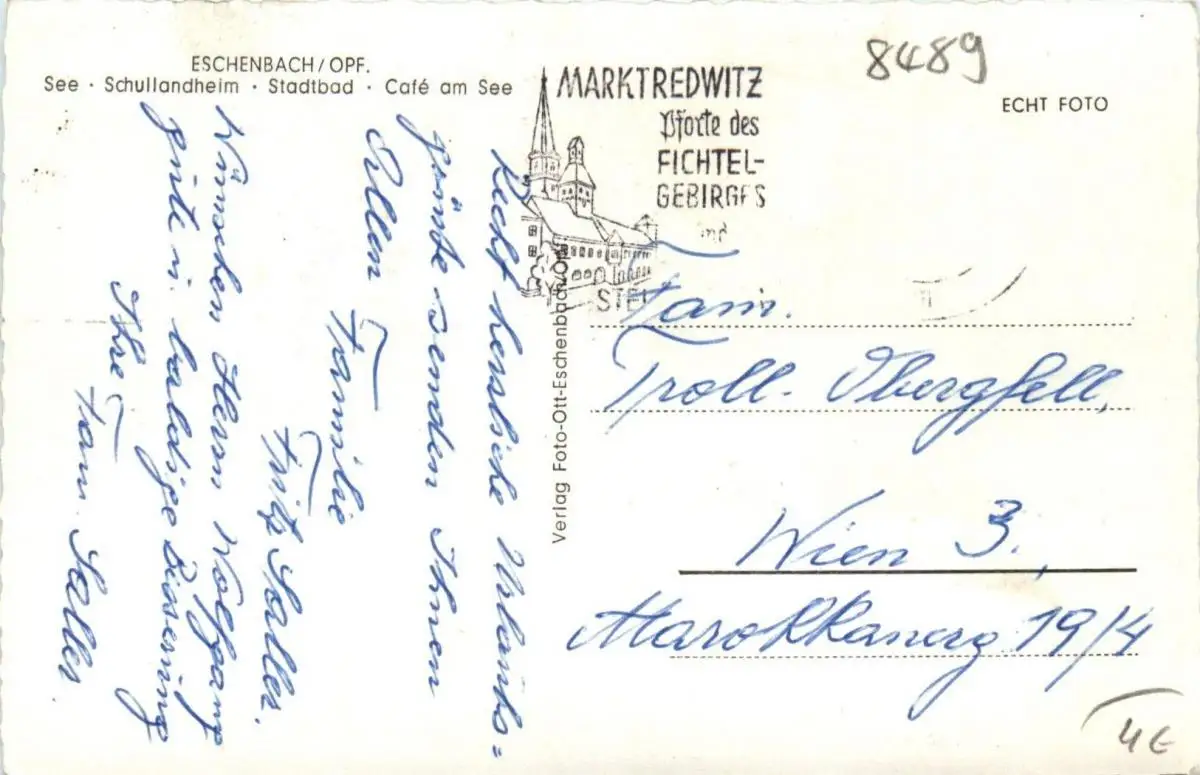 ESCHENBACH/OPF.
See · Schullandheim · Stadtbad · Café am See
MARKTREDWITZ
Pforte des
FICHTEL-
GEBIRGES
8489
ECHT FOTO
Recht herzliche Urlaubs=
grüße senden Ihnen
Allen Familie
Fritz Saller.
Wünschen Herrn Wolfgang
gute u. baldige Besserung
Ihre
Fam. Saller.
Verlag Foto-Ott-Eschenbach/Opf.
Fam.
Troll-Obergfell,
Wien 3.,
Marokkanerg. 19/4
4€